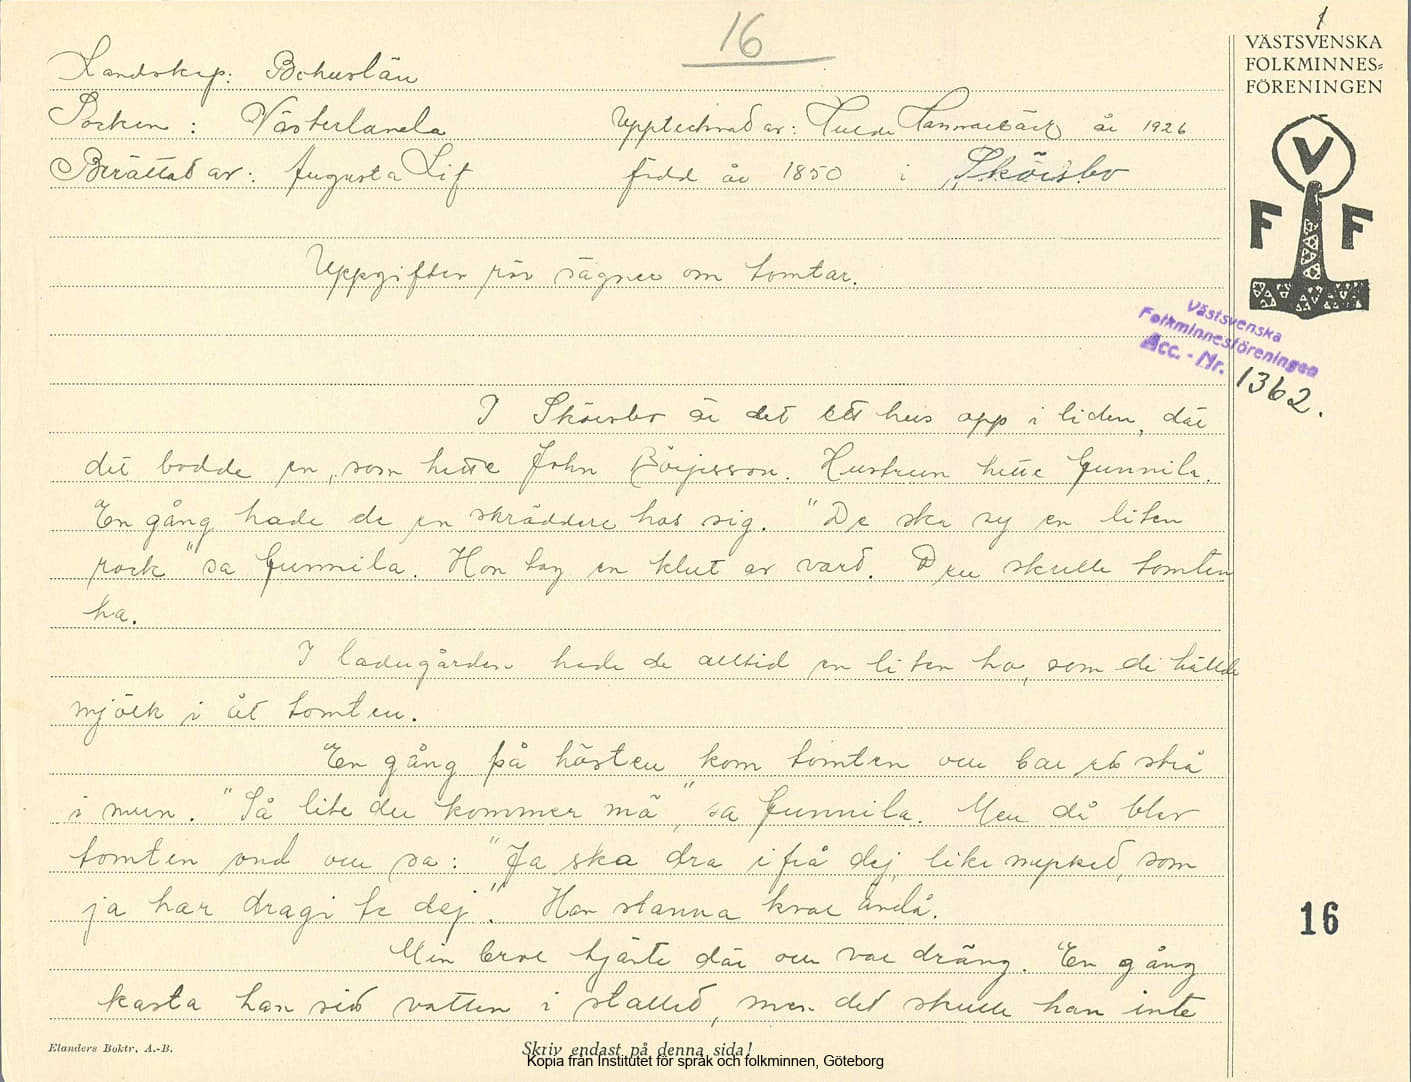 16
1
VÄSTSVENSKA
FOLKMINNES=
FÖRENINGEN
V
F F
Landskap: Bohuslän
Socken: Västerlanda Upptecknad av: År 1926
Berättad av: Augusta Lif född år 1850 i Skörsbo
Uppgifter rör sägner om tomtar.
Västsvenska
Folkminnesföreningen
Acc. - Nr. 1362.
I Skörsbo är det ett hus opp i liden, där
det bodde en, som hette John Börjesson. Hustrun hette Gunnila.
En gång hade de en skräddare hos sig. "De ska sy en liten
rock" sa Gunnila. Hon tog en klut av vard. Den skulle tomten
ha.
I ladugården hade de alltid en liten ho, som di hällde
mjölk i åt tomten.
En gång på hösten kom tomten oen bar ett strå
i mun. "Så lite du kommer mä", sa Gunnila. Men då blev
tomten ond oen sa: "Ja ska dra ifrå dej, like mycked, som
ja har dragi te dej". Han stanna kvar ändå.
Min bror tjänte där oen var dräng. En gång
kasta han sid vatten i stalled, men det skulle han inte
16
Elanders Boktr. A.-B.
Skriv endast på denna sida!
Kopia från Institutet för språk och folkminnen, Göteborg